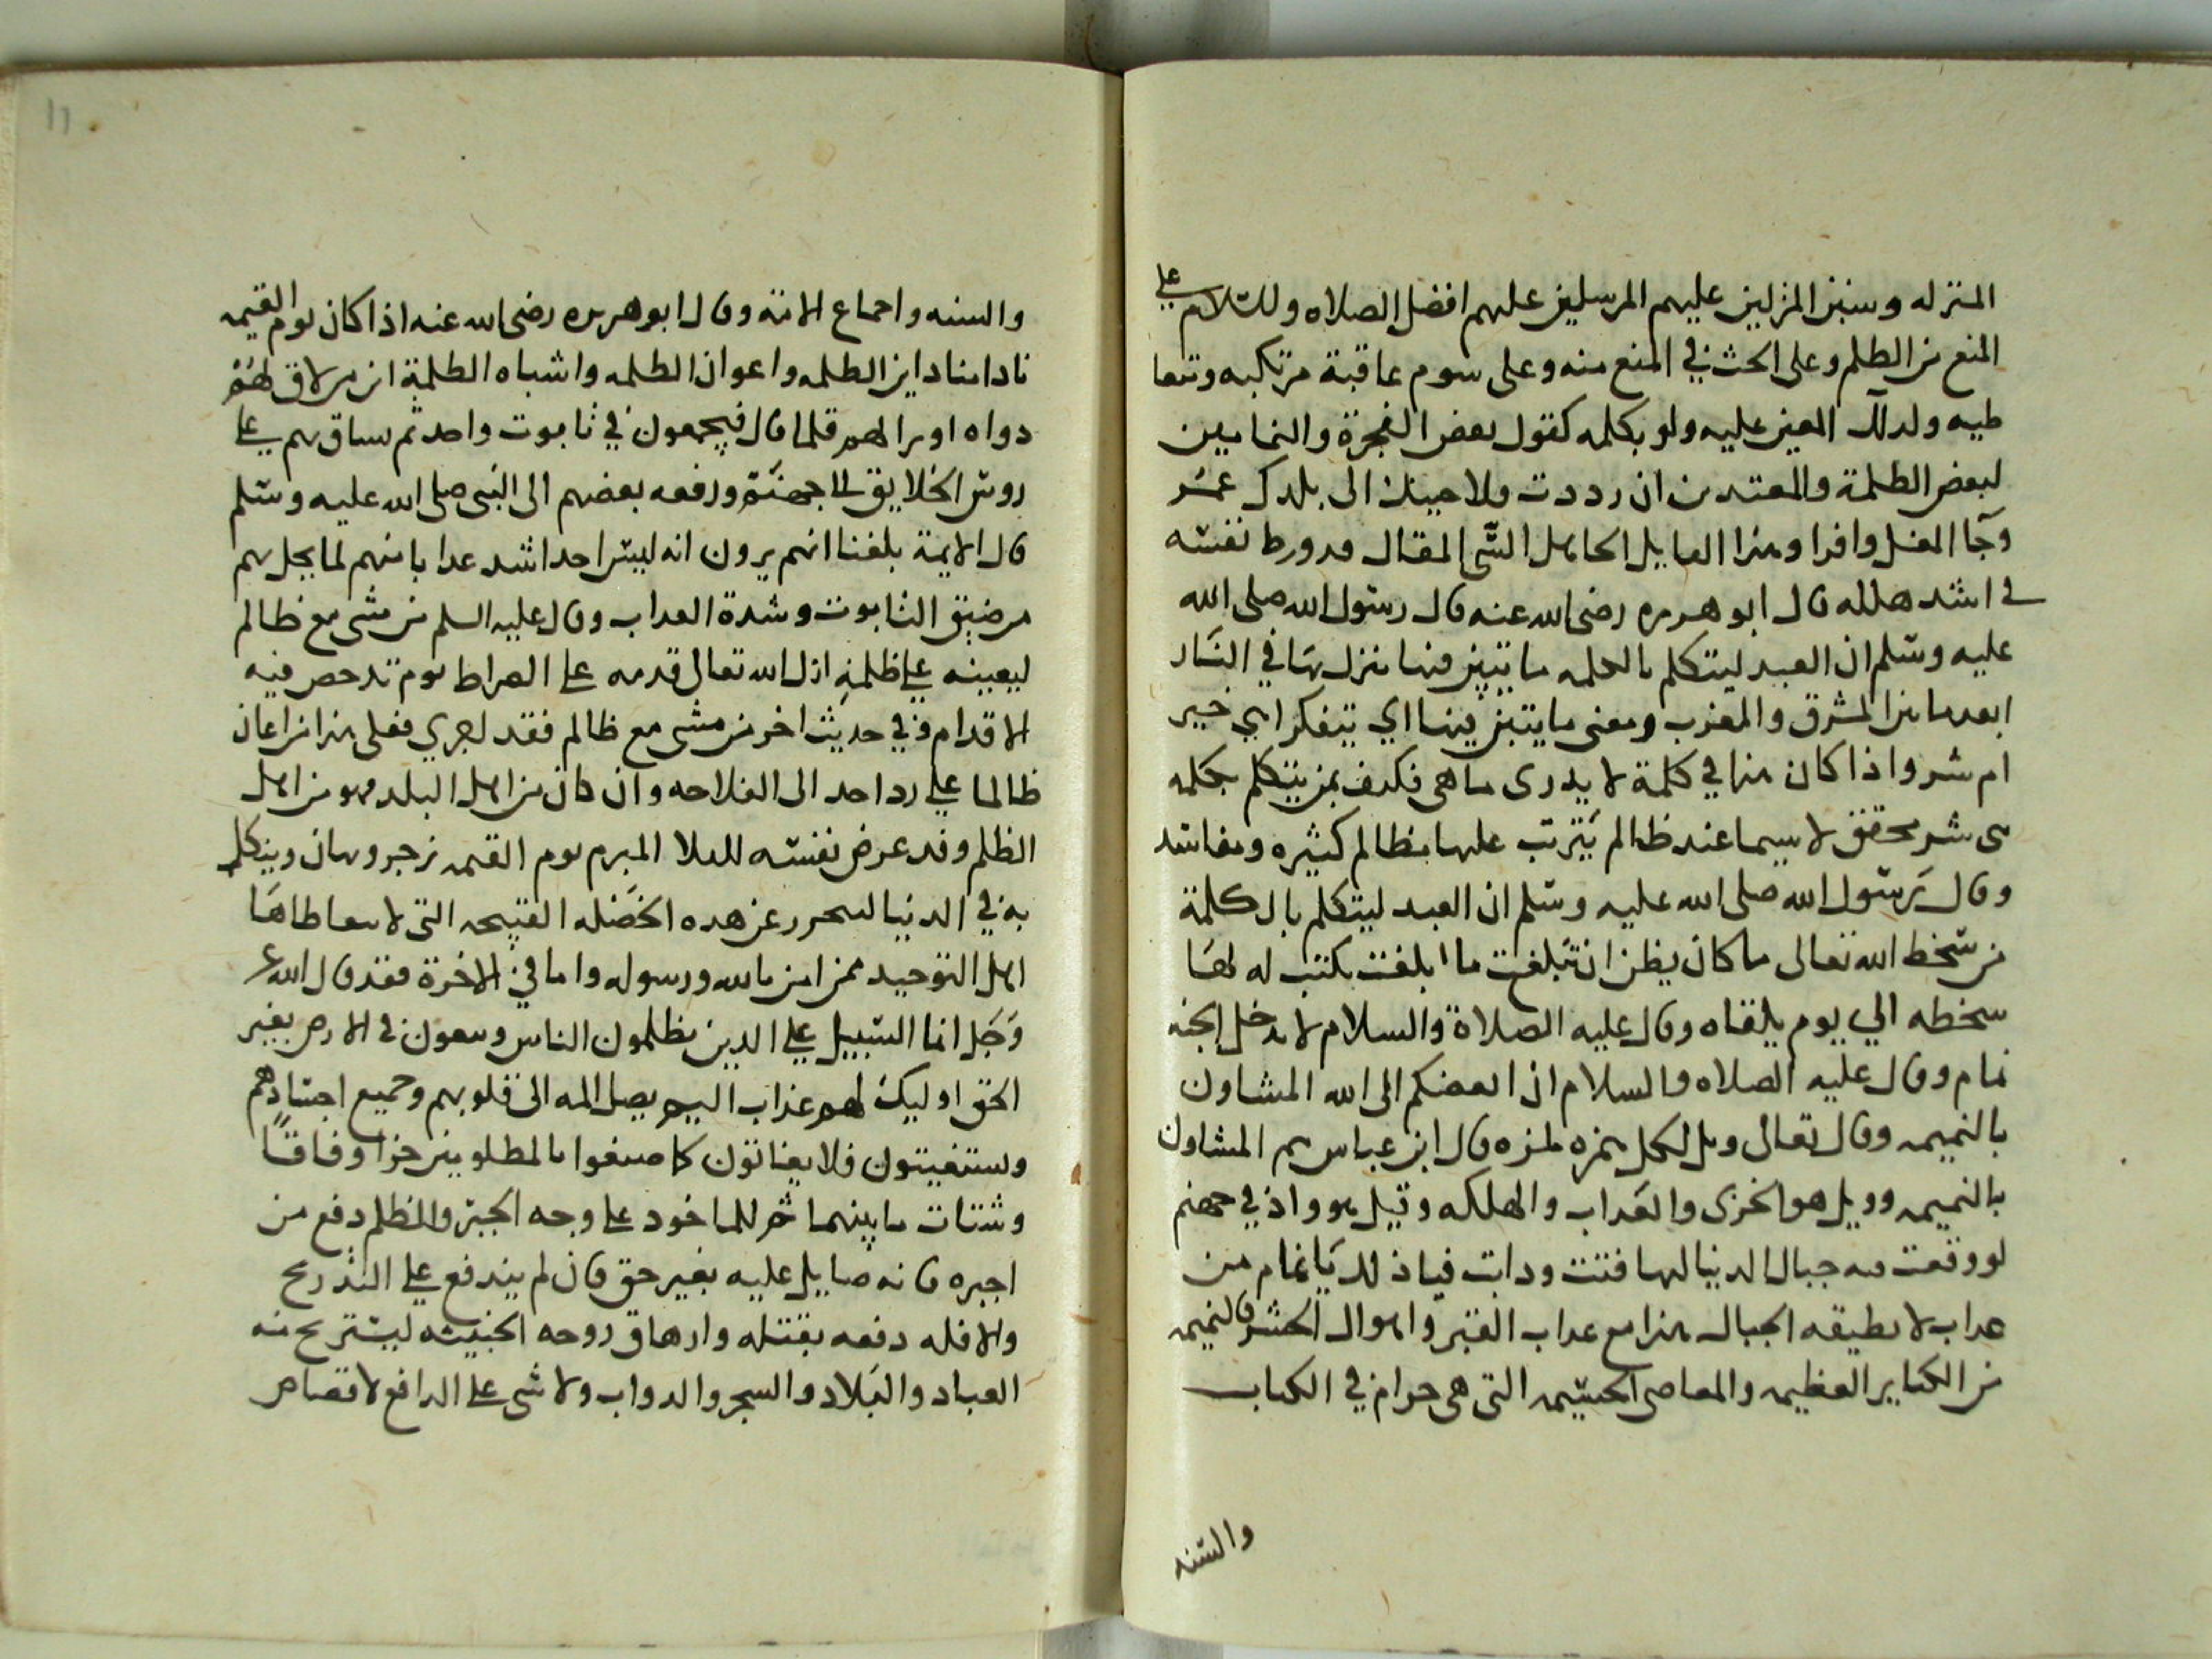 المنزله وسنن المنزلين عليهم المرسلين عليهم افضل الصلاه والسلام على
المنع من الظلم وعلى الحث في المنع منه وعلى سوم عاقبة مرتكبه ومتعا
طيه ولذلك المعين عليه ولو بكلمه كقول بعض الفجرة والنمامين
لبعض الظلمة والمعتدين ان رددت فلاحينك الى بلدك عمر
وجا المغل وافرا وهذا القايل الجاهل السى المقال قد ورط نفسه
في اشد هلكه قال ابو هريره رضي الله عنه قال رسول الله صلى الله
عليه وسلم ان العبد ليتكلم بالكلمه ما يتبين فيها ينزل بها في النار
ابعد ما بين المشرق والمغرب ومعنى ما يتبين فيها اي يتفكر اهي خير
ام شر واذا كان هذا في كلمة لا يدرى ما هى فكيف بمن يتكلم بكلمه
هى شر محقق لا سيما عند ظالم يترتب عليها مظالم كثيره ومفاسد
وقال رسول الله صلى الله عليه وسلم ان العبد ليتكلم بالكلمة
من سخط الله تعالى ما كان يظن ان تبلغ ما ابلغت يكتب له لها
سخطه الي يوم يلقاه وقال عليه الصلاة والسلام لا يدخل الجنه
نمام وقال عليه الصلاه والسلام ان ابغضكم الى الله المشاون
بالنميمه وقال تعالى ويل لكل همزه لمزه قال ابن عباس هم المشاون
بالنميمه وويل هو الخزى والعذاب والهلكه وقيل هو واد في جهنم
لو وقعت فيه جبال الدنيا لتهافتت وذابت فياذلك يا نمام من
عذاب لا تطيقه الجبال هذا مع عذاب القبر واهوال الحشر فالنميمه
من الكباير العظيمه والمعاصى الجسيمه التى هى حرام في الكتاب
والسنه
والسنه واجماع الامة وقال ابو هريره رضي الله عنه اذا كان يوم القيمه
نادا مناد اين الظلمه واعوان الظلمه واشباه الظلمة اين من لاق لهم
دواه او برا لهم قلما قال فيجمعون في تابوت واحد ثم يساق بهم على
روس الخلايق الى جهنم ورفعه بعضهم الى النبى صلى الله عليه وسلم
قال الايمة بلغنا انهم يرون انه ليس احد اشد عذابا منهم لما يحل بهم
من ضيق التابوت وشدة العذاب وقال عليه السلم من مشى مع ظالم
ليعينه على ظلمة ازل الله تعالى قدمه على الصراط يوم تدحض فيه
الاقدام وفي حديث اخر من مشى مع ظالم فقد اجري فعلى هذا من اعان
ظالما على رد احد الى الفلاحه وان كان من اهل البلد فهو من اهل
الظلم وقد عرض نفسه للبلا المبرم يوم القيمه زجر ويهان وينكل
به في الدنيا لينحرر عن هذه الخصله القبيحه التى لا يتعاطاها
اهل التوحيد ممن امن بالله ورسوله واما في الاخرة فقد قال الله عز
وجل انما السبيل على الدين يظلمون الناس ويبغون في الارض بغير
الحق اوليك لهم عذاب اليم يصل المه الى قلوبهم وجميع اجسادهم
ويستغيثون فلا يغاثون كما صنعوا بالمظلومين جزا وفاقًا
وشتات ما بينهما ثم للماخود على وجه الجبر والظلم دفع من
اجبره فانه صايل عليه بغير حق فان لم يندفع على التدريج
والا فله دفعه بقتله وارهاق روحه الخبيثه ليستريح منه
العباد والبلاد والشجر والدواب ولا شى على الدافع لا قصاص